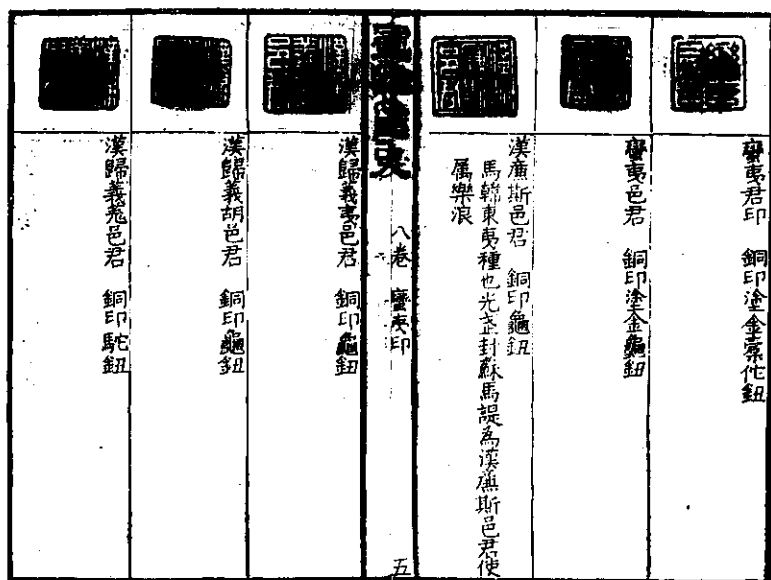 蠻夷君印　銅印塗金橐佗鈕
蠻夷邑君　銅印塗金龜鈕
漢廉斯邑君　銅印龜鈕
馬韓東夷種也光武封蘇馬諟為漢廉斯邑君使
属樂浪
八卷　蠻夷印
五
漢歸義夷邑君　銅印龜鈕
漢歸義胡邑君　銅印龜鈕
漢歸義羌邑君　銅印駝鈕